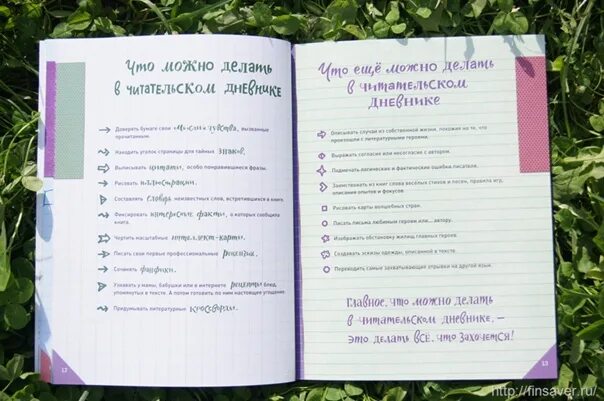 Что можно делать
в читательском дневнике
Доверять бумаге свои мысли и чувства, вызванные
прочитанным.
Находить уголок страницы для тайных знаков.
Выписывать цитаты, особо понравившиеся фразы.
Рисовать иллюстрации.
Составлять словарь неизвестных слов, встретившихся в книге.
Фиксировать интересные факты, о которых сообщила
книга.
Чертить масштабные интеллект-карты.
Писать свои первые профессиональные рецензии.
Сочинять фанфики.
Узнавать у мамы, бабушки или в интернете рецепты блюд,
упомянутых в тексте. А потом готовить по ним настоящее угощение.
Придумывать литературные кроссворды.
12
Что ещё можно делать
в читательском
дневнике
Описывать случаи из собственной жизни, похожие на те, что
произошли с литературными героями.
Выражать согласие или несогласие с автором.
Подмечать логические и фактические ошибки писателя.
Заимствовать из книг слова весёлых стихов и песен, правила игр,
описания опытов и фокусов.
Рисовать карты волшебных стран.
Писать письма любимым героям или... автору.
Изображать обстановку жилищ главных героев.
Создавать эскизы одежды, описанной в тексте.
Переводить самые захватывающие отрывки на другой язык.
Главное, что можно делать
в читательском дневнике, —
это делать всё, что захочется!
13
http://finsaver.ru/